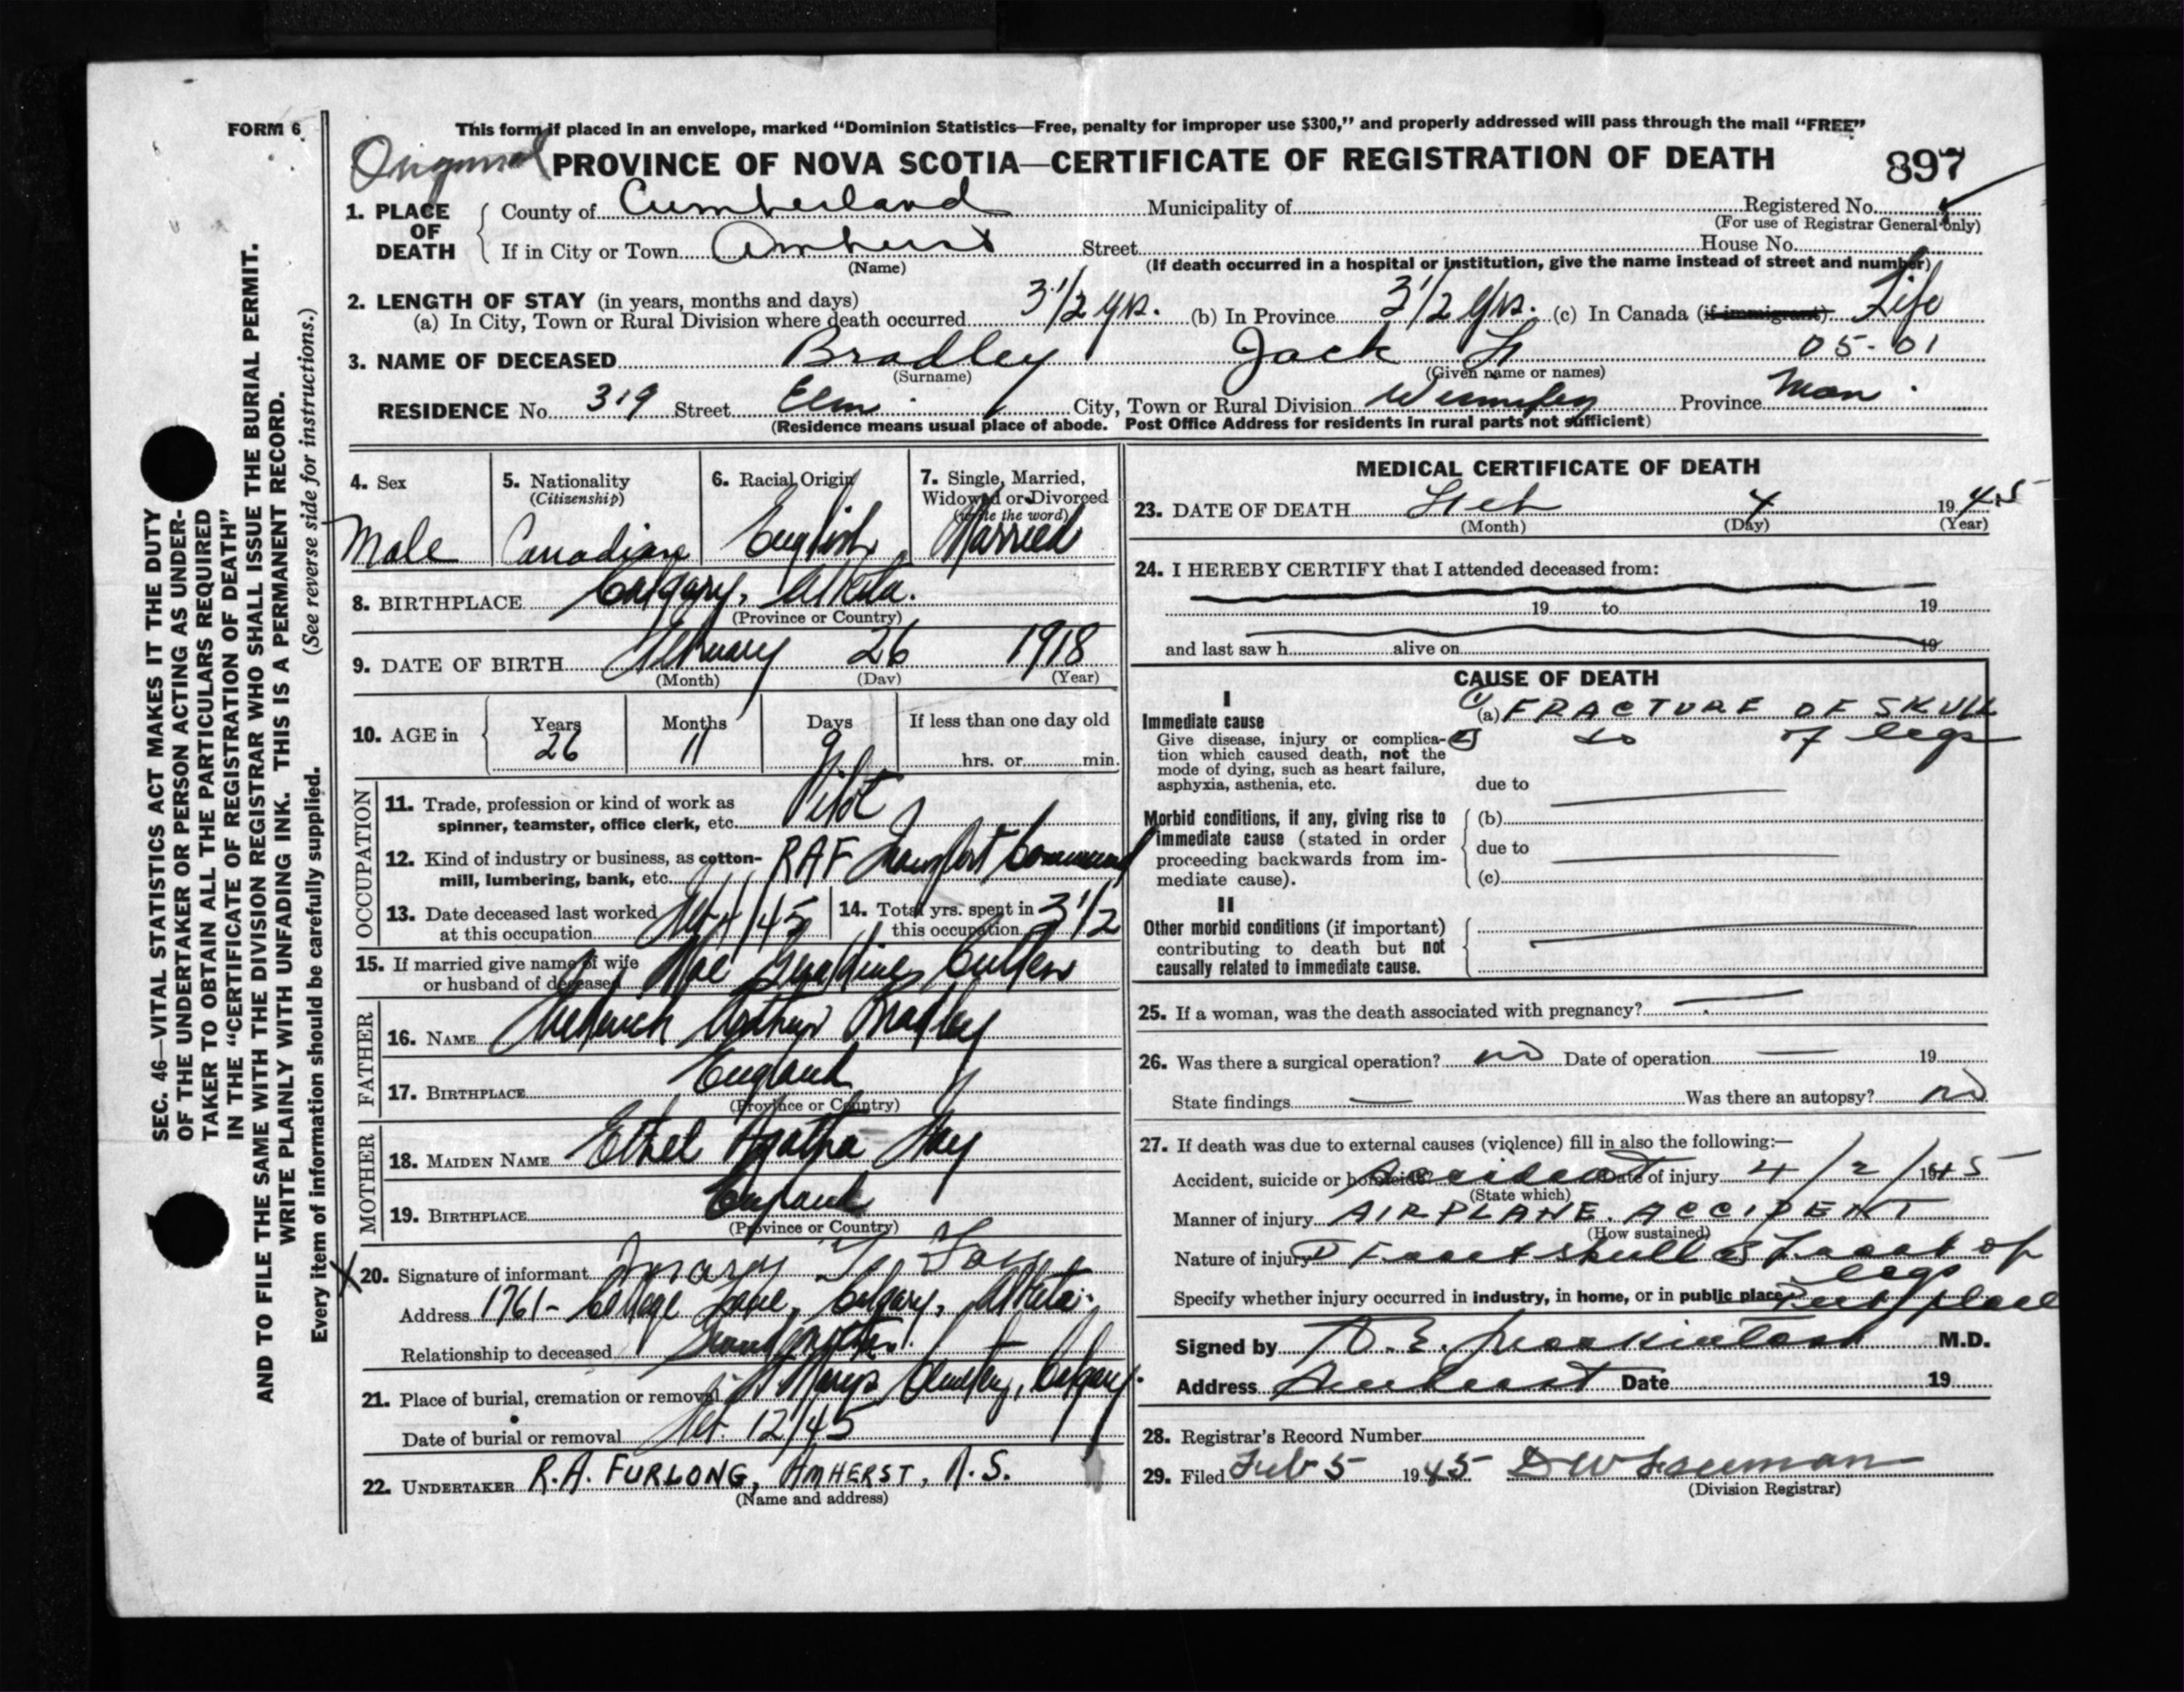 FORM 6
This form if placed in an envelope, marked “Dominion Statistics—Free, penalty for improper use $300,” and properly addressed will pass through the mail “FREE”
Original PROVINCE OF NOVA SCOTIA—CERTIFICATE OF REGISTRATION OF DEATH 897
SEC. 46—VITAL STATISTICS ACT MAKES IT THE DUTY
OF THE UNDERTAKER OR PERSON ACTING AS UNDER-
TAKER TO OBTAIN ALL THE PARTICULARS REQUIRED
IN THE “CERTIFICATE OF REGISTRATION OF DEATH”
AND TO FILE THE SAME WITH THE DIVISION REGISTRAR WHO SHALL ISSUE THE BURIAL PERMIT.
WRITE PLAINLY WITH UNFADING INK. THIS IS A PERMANENT RECORD.
Every item of information should be carefully supplied. (See reverse side for instructions.)
1. PLACE OF DEATH
County of Cumberland Municipality of Registered No.
(For use of Registrar General only)
If in City or Town Amherst Street House No.
(Name) (If death occurred in a hospital or institution, give the name instead of street and number)
2. LENGTH OF STAY (in years, months and days)
(a) In City, Town or Rural Division where death occurred 3 1/2 yrs. (b) In Province 3 1/2 yrs. (c) In Canada (if immigrant) Life
3. NAME OF DECEASED Bradley Jack F 05-01
(Surname) (Given name or names)
RESIDENCE No. 319 Street Elm City, Town or Rural Division Winnipeg Province Man.
(Residence means usual place of abode. Post Office Address for residents in rural parts not sufficient)
4. Sex
Male
5. Nationality
(Citizenship)
Canadian
6. Racial Origin
English
7. Single, Married,
Widowed or Divorced
(write the word)
Married
8. BIRTHPLACE Calgary, Alberta.
(Province or Country)
9. DATE OF BIRTH February 26 1918
(Month) (Day) (Year)
10. AGE in Years Months Days If less than one day old
26 11 9 hrs. or min.
OCCUPATION
11. Trade, profession or kind of work as
spinner, teamster, office clerk, etc. Pilot
12. Kind of industry or business, as cotton-
mill, lumbering, bank, etc. RAF Transport Command
13. Date deceased last worked
at this occupation Feb 4/45
14. Total yrs. spent in
this occupation 3 1/2
15. If married give name of wife
or husband of deceased Mae Geraldine Cullen
FATHER
16. NAME Frederick Arthur Bradley
17. BIRTHPLACE England
(Province or Country)
MOTHER
18. MAIDEN NAME Ethel Agatha
19. BIRTHPLACE England
(Province or Country)
X 20. Signature of informant Mary
Address 1761- College Lane, Calgary, Alberta.
Relationship to deceased Grandmother.
21. Place of burial, cremation or removal St Marys Cemetery, Calgary.
Date of burial or removal Feb. 12/45
22. UNDERTAKER R.A. FURLONG, AMHERST, N.S.
(Name and address)
MEDICAL CERTIFICATE OF DEATH
23. DATE OF DEATH Feb 4 1945
(Month) (Day) (Year)
24. I HEREBY CERTIFY that I attended deceased from:
19 to 19
and last saw h alive on 19
CAUSE OF DEATH
I
Immediate cause
Give disease, injury or complica-
tion which caused death, not the
mode of dying, such as heart failure,
asphyxia, asthenia, etc.
(1) (a) FRACTURE OF SKULL
(2) do of legs
due to
Morbid conditions, if any, giving rise to
immediate cause (stated in order
proceeding backwards from im-
mediate cause).
(b)
due to
(c)
II
Other morbid conditions (if important)
contributing to death but not
causally related to immediate cause.
25. If a woman, was the death associated with pregnancy?
26. Was there a surgical operation? no Date of operation 19
State findings Was there an autopsy? no
27. If death was due to external causes (violence) fill in also the following:—
Accident, suicide or homicide Accident Date of injury 4/2/1945
(State which)
Manner of injury AIRPLANE ACCIDENT
(How sustained)
Nature of injury (1) Fract skull (2) Fract of
legs
Specify whether injury occurred in industry, in home, or in public place place
Signed by M.D.
Address Amherst Date 19
28. Registrar's Record Number
29. Filed Feb 5 1945
(Division Registrar)